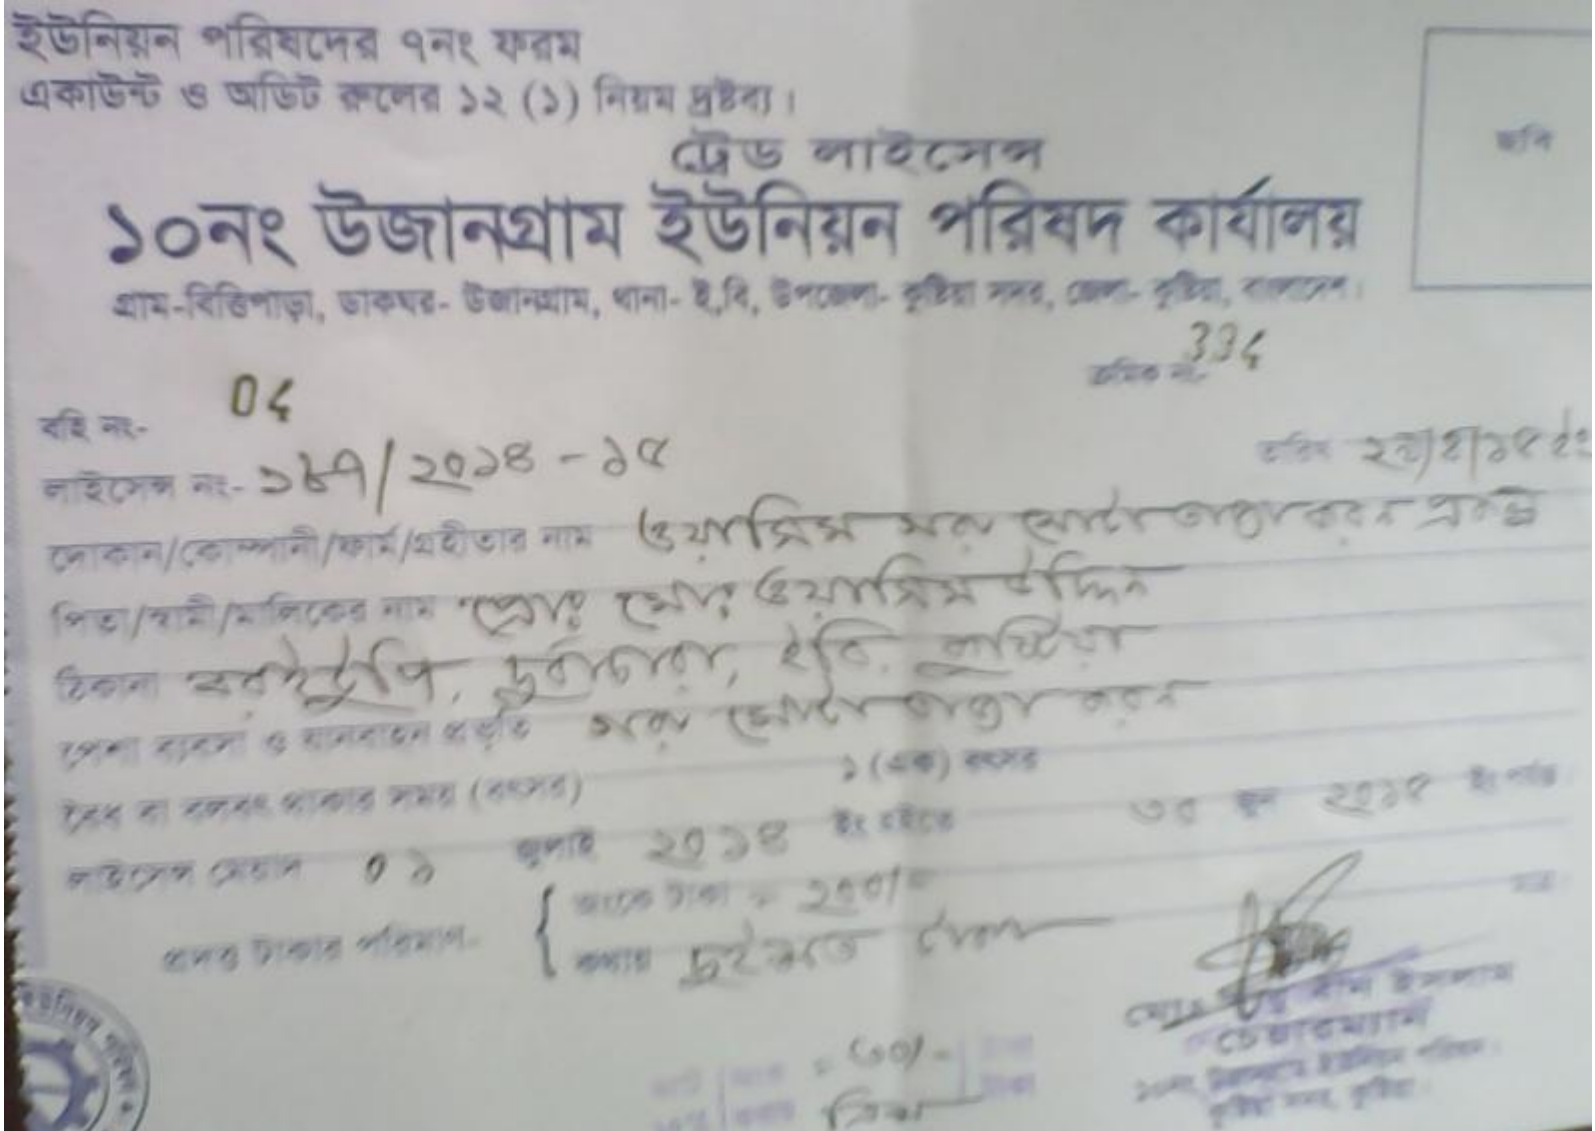 ইউনিয়ন পরিষদের ৭নং ফরম
একাউন্ট ও অডিট রুলের ১২ (১) নিয়ম দ্রষ্টব্য ।
ছবি
ট্রেড লাইসেন্স
১০নং উজানগ্রাম ইউনিয়ন পরিষদ কার্যালয়
গ্রাম-বিত্তিপাড়া, ডাকঘর- উজানগ্রাম, থানা- ই,বি, উপজেলা- কুষ্টিয়া সদর, জেলা- কুষ্টিয়া, বাংলাদেশ।
ক্রমিক নং-
বহি নং- 04
লাইসেন্স নং- ১৮৭/২০১৪ - ১৫ তারিখ
দোকান/কোম্পানী/ফার্ম/গ্রহীতার নাম ওয়াসিম গরু মোটা তাজা করন প্রকল্প
পিতা/স্বামী/মালিকের নাম প্রোঃ মোঃ ওয়াসিম উদ্দিন
ঠিকানা দুর্বাচারা, ইবি, কুষ্টিয়া
পেশা ব্যবসা ও যানবাহন প্রভৃতি গরু মোটা তাজা করন
বৈধ বা বলবৎ থাকার সময় (বৎসর) ১ (এক) বৎসর
লাইসেন্স মেয়াদ ০১ জুলাই ২০১৪ ইং হইতে ৩০ জুন ২০১৫ ইং পর্যন্ত
প্রদত্ত টাকার পরিমাণ- অংকে টাকা = ২০০/=
কথায় দুইশত টাকা
মোঃ ইসলাম
চেয়ারম্যান
১০নং উজানগ্রাম ইউনিয়ন পরিষদ
কুষ্টিয়া সদর, কুষ্টিয়া।
= ৩০/-
ত্রিশ
ইউনিয়ন পরিষদ